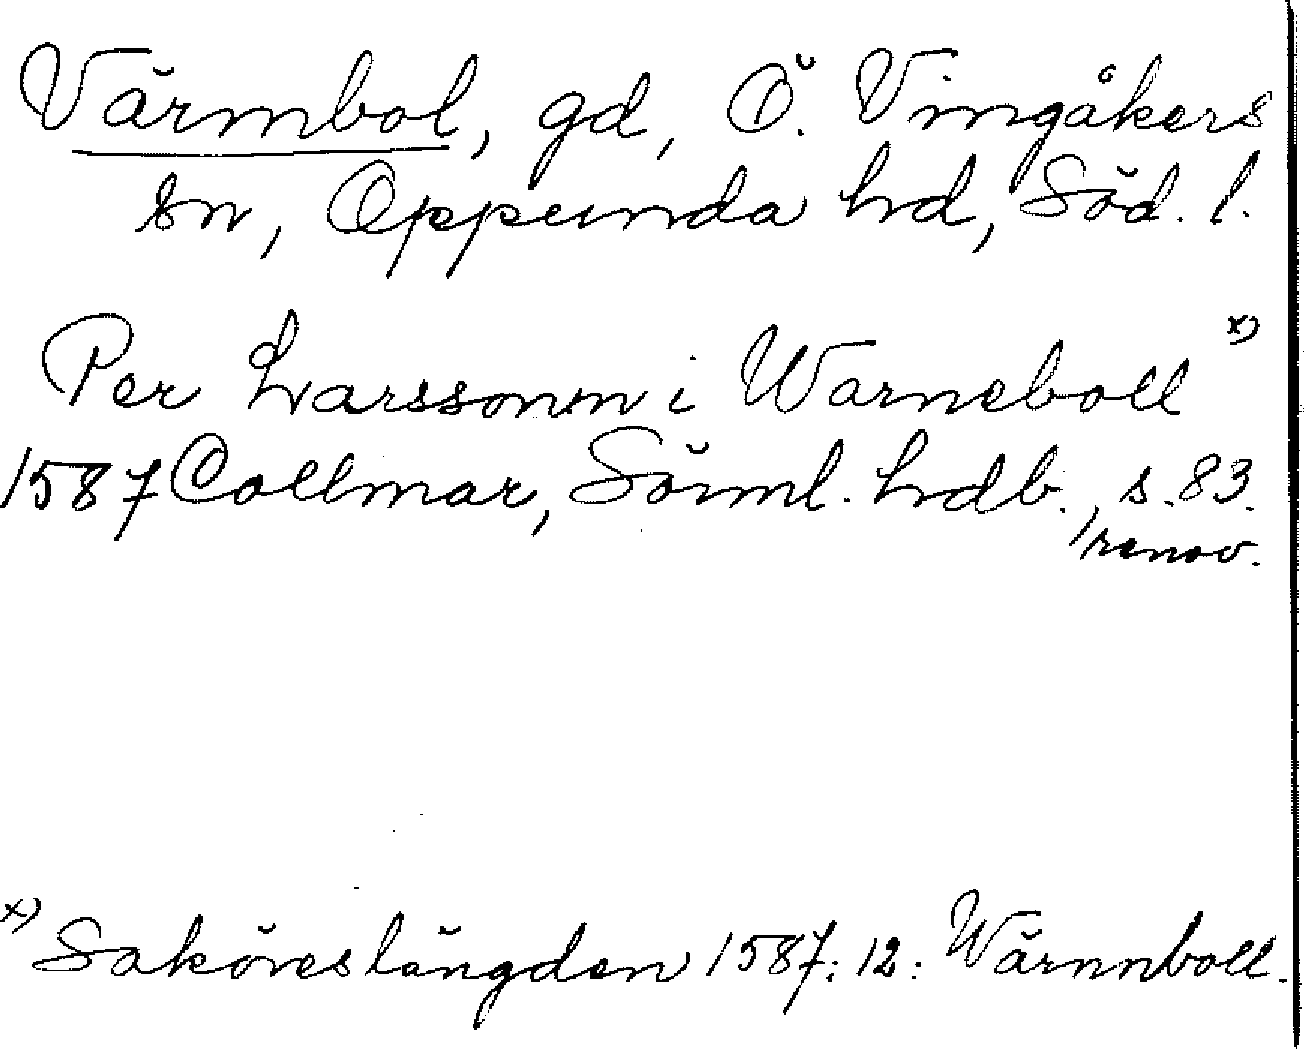 Värmbol, gd, Ö. Vingåkers
sn, Oppunda hd, Söd. l.
Per Larssonn i Warneboll x)
1587 Collmar, Söiml. hrdb., s. 83.
/renov.
x) Saköreslängden 1587: 12: Wärnnboll.